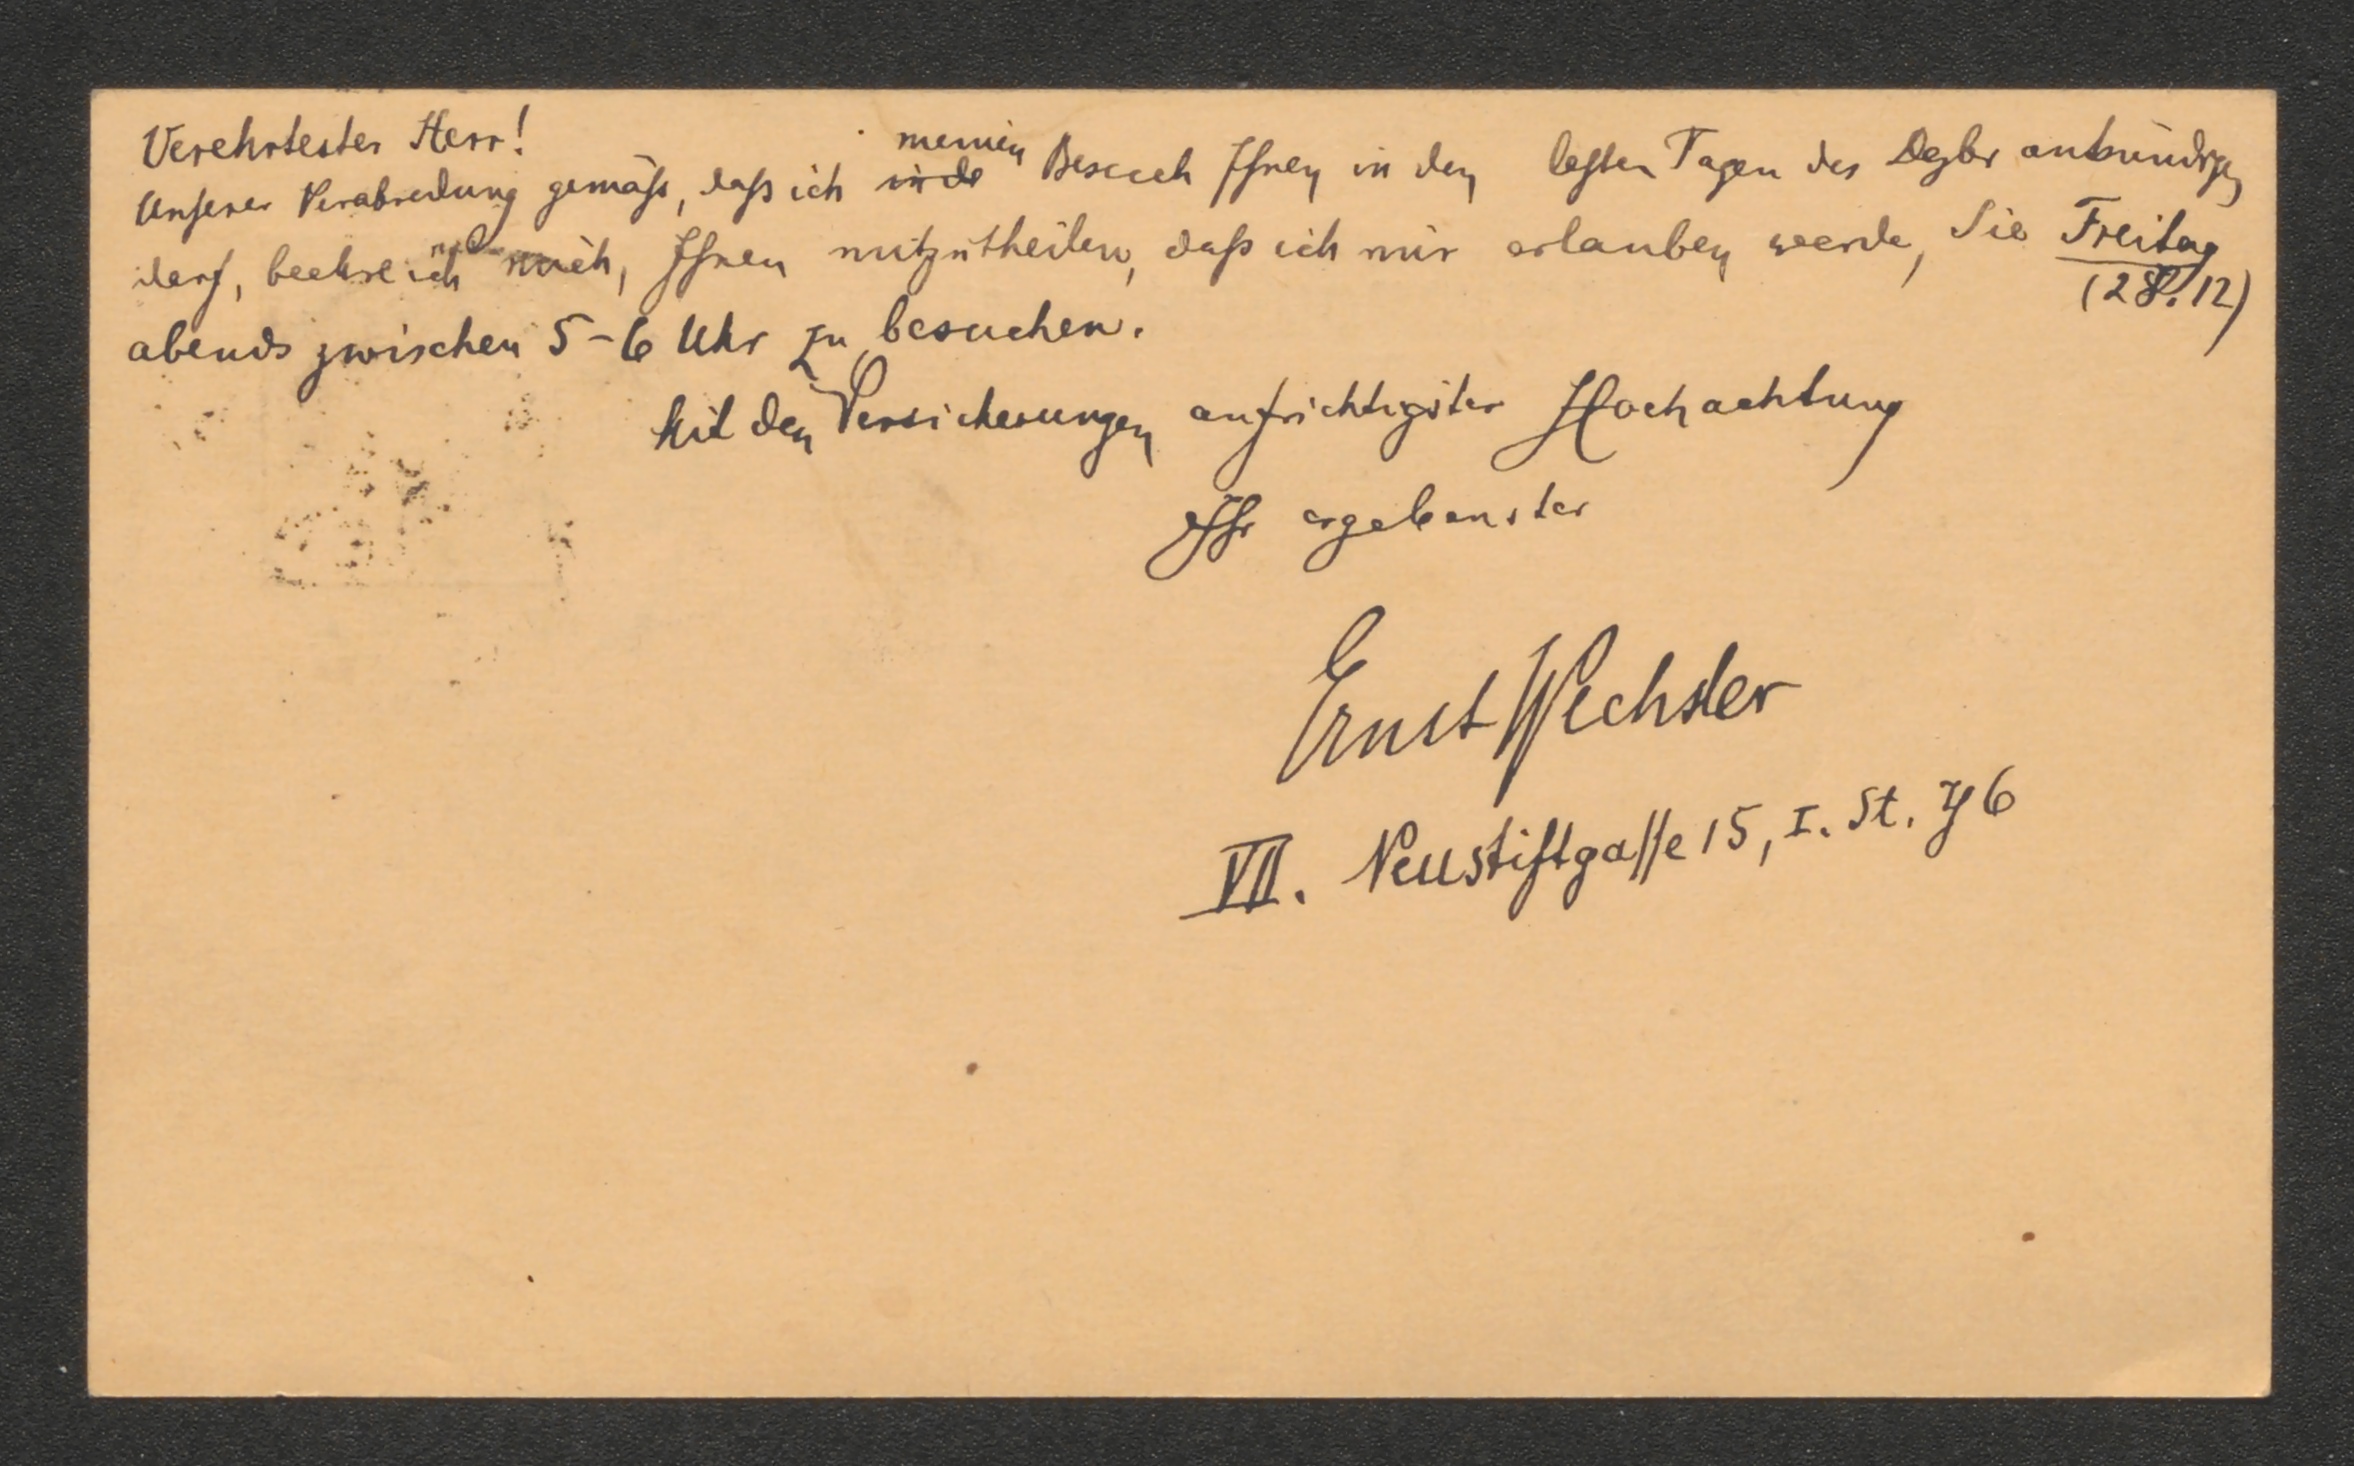 Verehrtester Herr!
Unserer Verabredung gemäß, daß ich meinen Besuch Ihnen in den letzten Tagen des Dezbr ankündigen
darf, beehre ich mich, Ihnen mitzutheilen, daß ich mir erlauben werde, Sie Freitag
(28. 12)
abends zwischen 5-6 Uhr zu besuchen.
Mit den Versicherungen aufrichtigster Hochachtung
Ihr ergebenster
Ernst Wechsler
VII. Neustiftgasse 15, I. St. 6